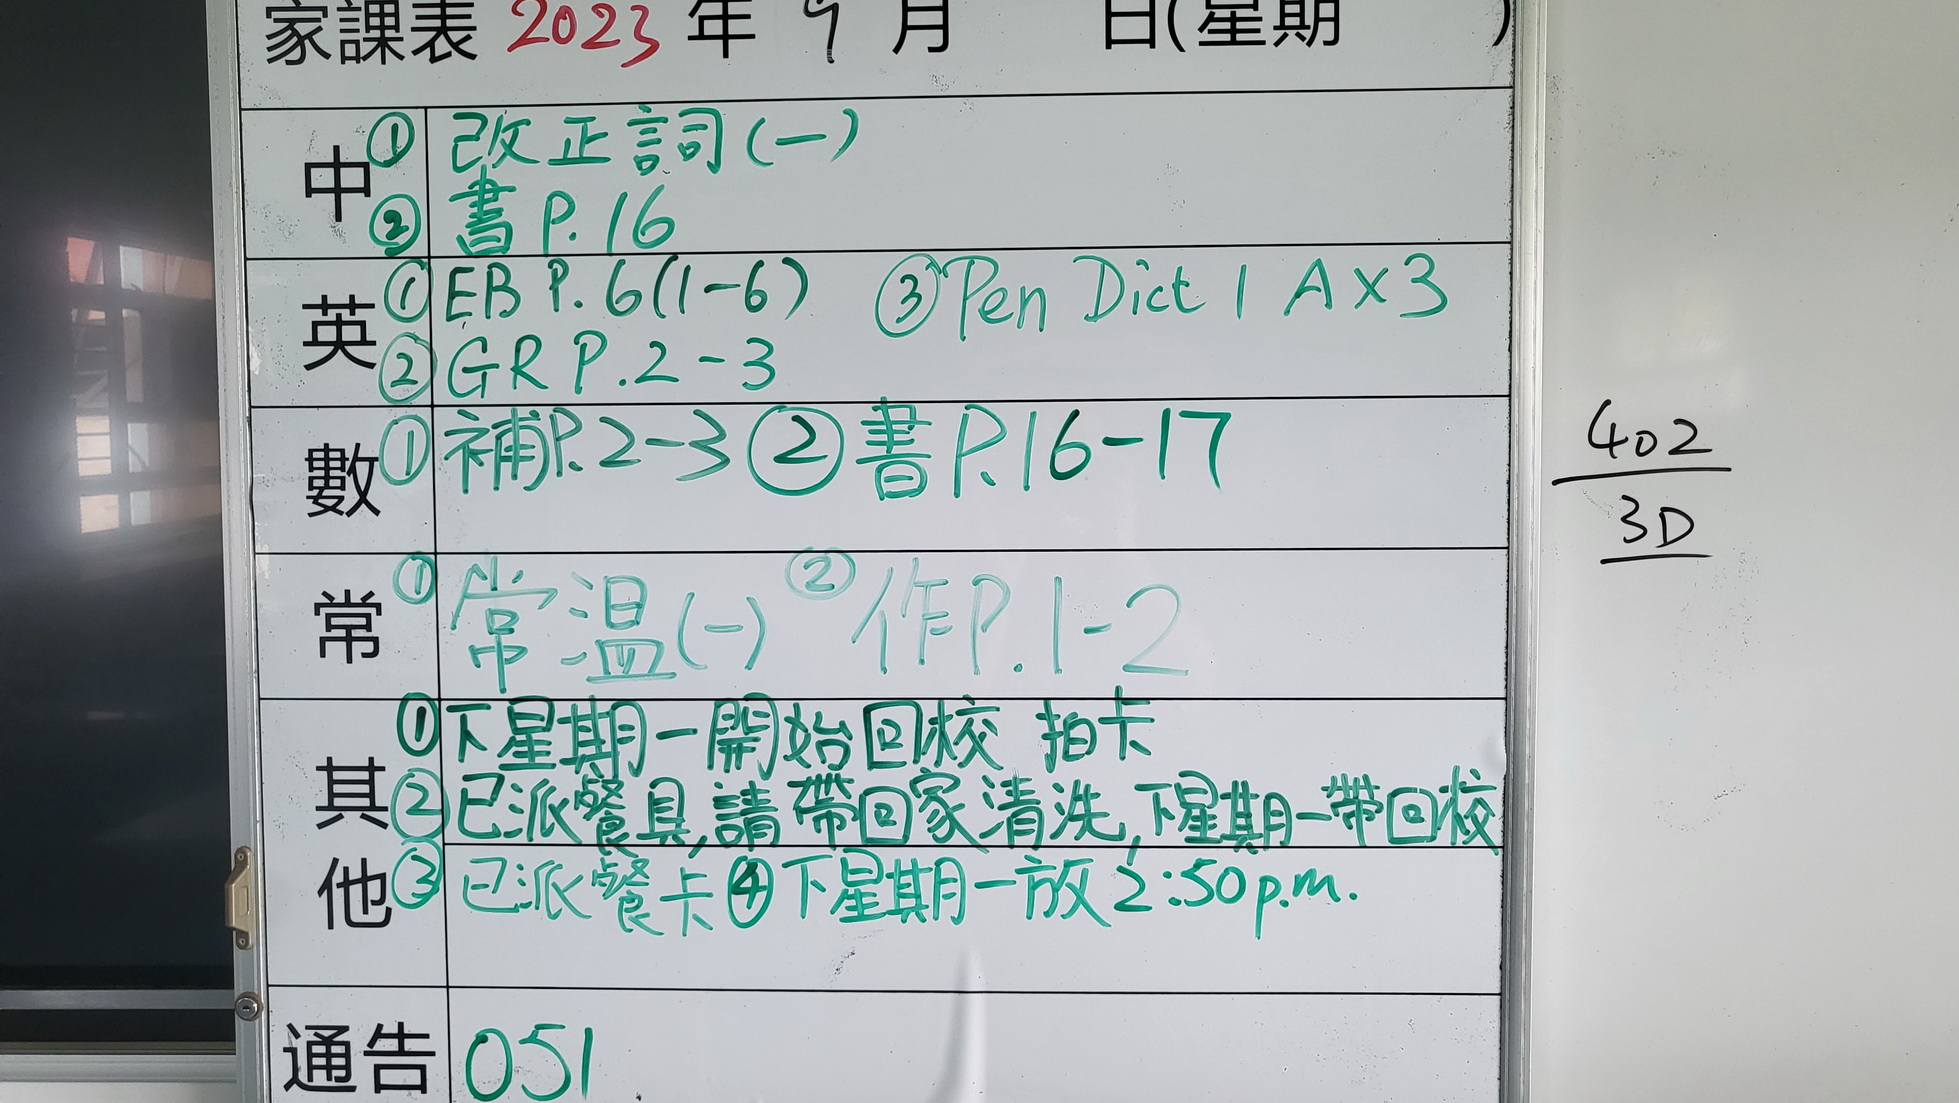 家課表 2023 年 9 月 日(星期 )
中 ① 改正詞(一)
② 書 P.16
英 ① EB P.6(1-6) ③ Pen Dict 1 A×3
② GR P.2-3
數 ① 補P.2-3 ② 書 P.16-17
常 ① 常温(一) ② 作P.1-2
其他 ① 下星期一開始回校 拍卡
② 已派餐具,請帶回家清洗,下星期一帶回校
③ 已派餐卡 ④ 下星期一放2:50p.m.
通告 051
402
3D